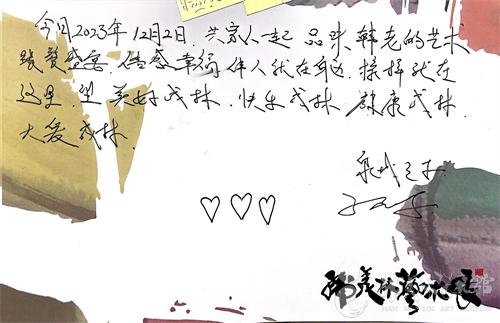 今日2023年12月2日.与家人一起 品味韩老的艺术
饕餮盛宴.倍感幸福.伟人就在身边.榜样就在
这里.望美好成林.快乐成林.健康成林.
大爱成林.
泉城之子
♡♡♡
韩美林艺术展
HAN MEI LIN ART MUSEUM